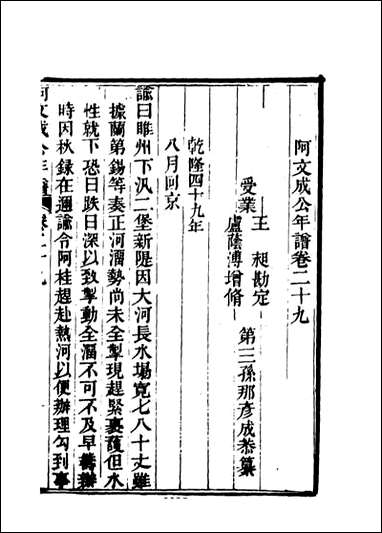 阿文成公年譜卷二十九
第三孫那彥成恭纂
受業
王　昶勘定
盧蔭溥增脩
乾隆四十九年
八月回京
諭曰睢州下汛二堡新隄因大河長水塲寬七八十丈雖
據蘭第錫等奏正河溜勢尚未全掣現趕緊裹護但水
性就下恐日跌日深以致掣動全溜不可不及早籌辦
時因秋錄在邇諭令阿桂趕赴熱河以便辦理勾到事
阿文成公年譜
卷二十九